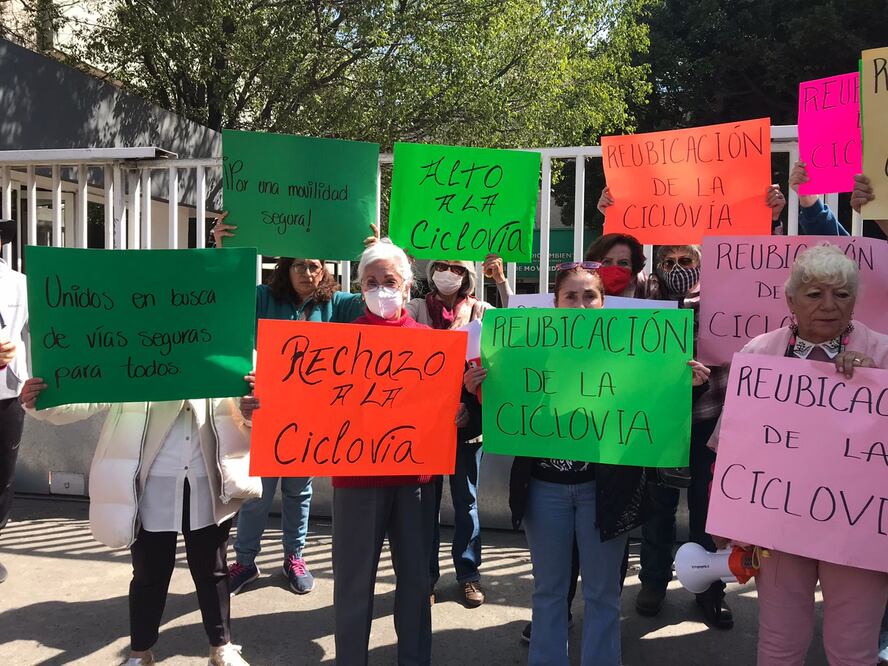 ¡Por una movilidad
segura!
ALTO
A LA
CiclovÍa
REUBICACIÓN
DE LA
CICLOVÍA
REUB
CIC
Unidos en busca
de vías seguras
para todos.
RECHAZO
A LA
CiclovÍa
REUBICACIÓN
DE LA
CICLOVIA
REUBICACI
DE
CICLO
REUBICAC
DE LA
CICLOVI
DE MOVI